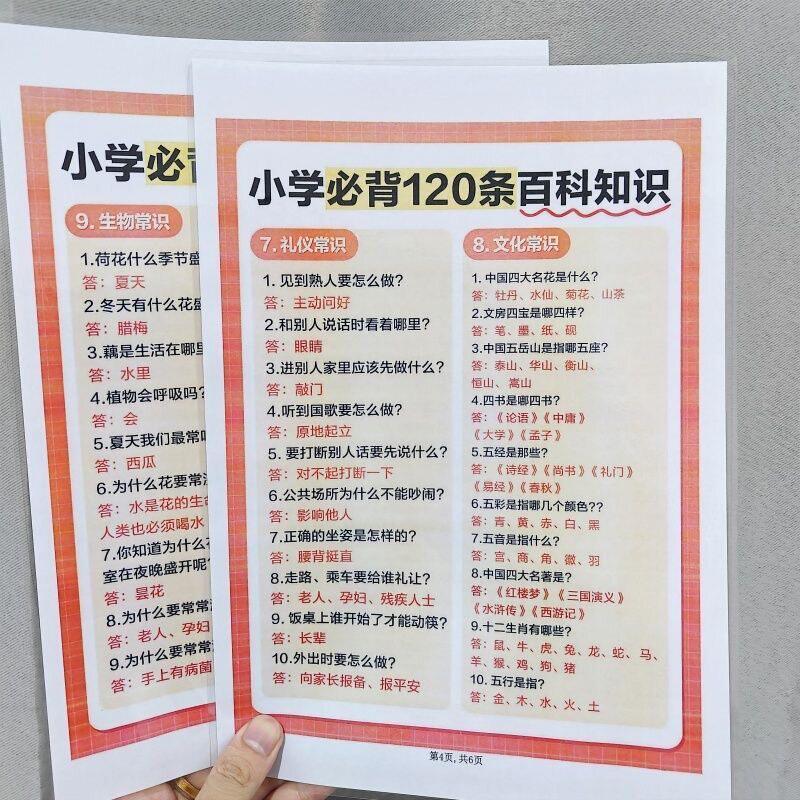 小学必背
9. 生物常识
1.荷花什么季节盛
答：夏天
2.冬天有什么花盛
答：腊梅
3.藕是生活在哪里
答：水里
4.植物会呼吸吗?
答：会
5.夏天我们最常吃
答：西瓜
6.为什么花要常浇
答：水是花的生命
人类也必须喝水
7.你知道为什么花
室在夜晚盛开呢?
答：昙花
8.为什么要常常
答：老人、孕妇
9.为什么要常常
答：手上有病菌
小学必背120条百科知识
7. 礼仪常识
1. 见到熟人要怎么做?
答：主动问好
2.和别人说话时看着哪里?
答：眼睛
3.进别人家里应该先做什么?
答：敲门
4.听到国歌要怎么做?
答：原地起立
5. 要打断别人话要先说什么?
答：对不起打断一下
6.公共场所为什么不能吵闹?
答：影响他人
7.正确的坐姿是怎样的?
答：腰背挺直
8.走路、乘车要给谁礼让?
答：老人、孕妇、残疾人士
9. 饭桌上谁开始了才能动筷?
答：长辈
10.外出时要怎么做?
答：向家长报备、报平安
8. 文化常识
1. 中国四大名花是什么?
答：牡丹、水仙、菊花、山茶
2.文房四宝是哪四样?
答：笔、墨、纸、砚
3.中国五岳山是指哪五座?
答：泰山、华山、衡山、
恒山、嵩山
4.四书是哪四书?
答：《论语》《中庸》
《大学》《孟子》
5.五经是那些?
答：《诗经》《尚书》《礼门》
《易经》《春秋》
6.五彩是指哪几个颜色??
答：青、黄、赤、白、黑
7.五音是指什么?
答：宫、商、角、徵、羽
8.中国四大名著是?
答：《红楼梦》《三国演义》
《水浒传》《西游记》
9.十二生肖有哪些?
答：鼠、牛、虎、兔、龙、蛇、马、
羊、猴、鸡、狗、猪
10. 五行是指?
答：金、木、水、火、土
第4页, 共6页